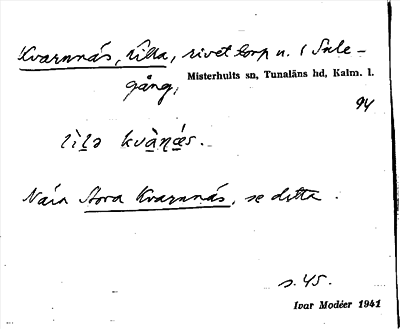 Kvarnnäs, Lilla, rivet torp u. 1 Sule-
gång,
Misterhults sn, Tunaläns hd, Kalm. l.
94
lìlə kvànǽs.
Nära Stora Kvarnnäs, se detta.
s. 45.
Ivar Modéer 1941